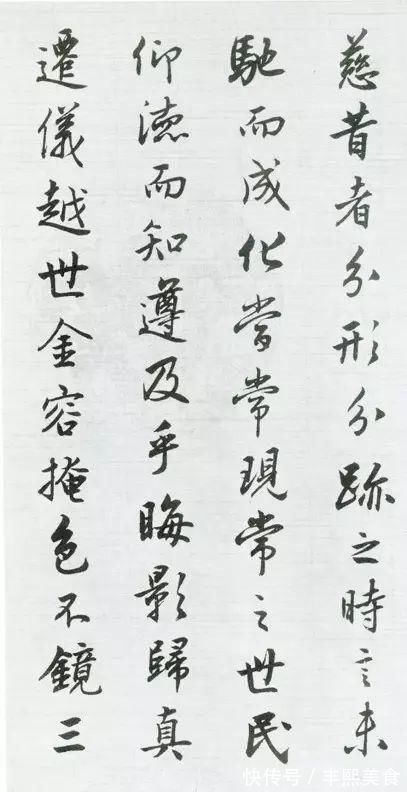 慈昔者分形分跡之時言未
馳而成化當常現常之世民
仰德而知遵及乎晦影歸真
遷儀越世金容掩色不鏡三
快传号 / 丰熙美食